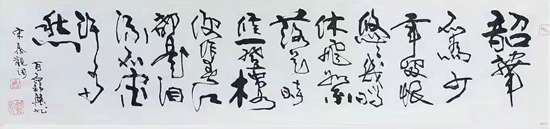 韶華
不為少
年留恨
悠悠幾時
休飛絮
落花時
候一登樓
便作春江
都是泪
流不盡
許多
愁
宋秦觀詞